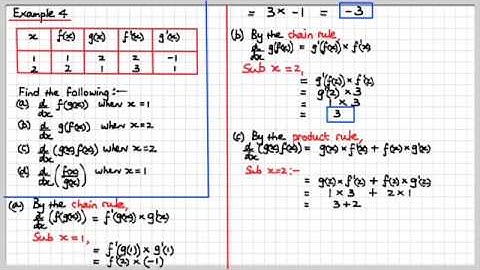 Example 4
x f(x) g(x) f'(x) g'(x)
1 1 2 2 -1
2 2 1 3 1
Find the following:-
(a) d/dx f(g(x)) when x=1
(b) d/dx g(f(x)) when x=2
(c) d/dx (g(x)f(x)) when x=2
(d) d/dx (f(x)/g(x)) when x=1
(a) By the chain rule,
d/dx (f(g(x))) = f'(g(x)) × g'(x)
Sub x=1,
= f'(g(1)) × g'(1)
= f'(2) × (-1)
= 3 × -1 = -3
(b) By the chain rule,
d/dx g(f(x)) = g'(f(x)) × f'(x)
Sub x=2,
= g'(f(2)) × f'(2)
= g'(2) × 3
= 1 × 3
= 3
(c) By the product rule,
d/dx (g(x)f(x)) = g(x) × f'(x) + f(x) × g'(x)
Sub x=2:-
= g(2) × f'(2) + f(2) × g'(2)
= 1 × 3 + 2 × 1
= 3+2